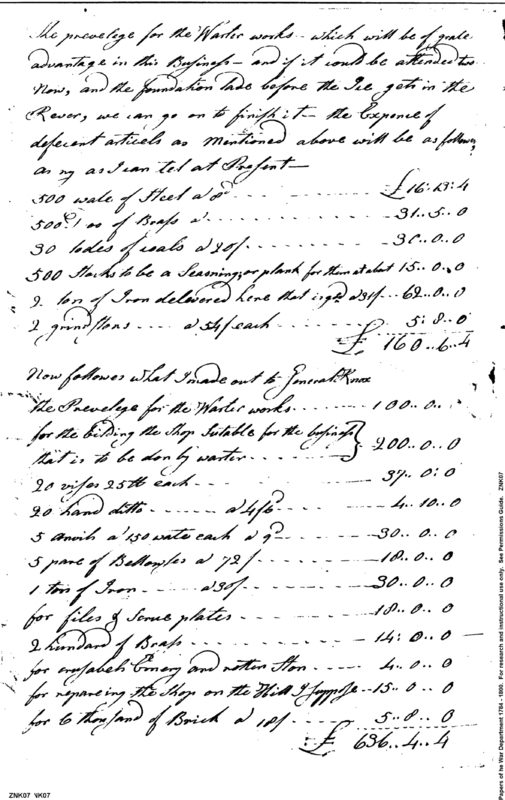 the prevelege for the Warter works - which will be of grate
advantage in this Business - and if it could be attended two
Now, and the foundation lade before the Ice gets in the
Rever, we can go on to finish it - the Expence of
deferent articels as Mentioned above will be as follows,
as ny as I can tel at Present -
500 wate of Steel a 8d - - - - £16:13:4
500 of Brass a - - - - 31..5..0
30 lodes of coals a 20/ - - - - 30..0..0
500 Stocks to be a Seasning, or plank for them at abot 15..0..0
2 tons of Iron delivered here that is gd a 31/ - - 62..0..0
2 grindstons - - - - a 54/ each - - - - 5:8..0
£160..6..4
Now follows what I made out to General Knox
the Prevelege for the Warter works - - - - 100..0..
for the Bilding the Shop Sutable for the business
that is to be don by warter - - - - 200..0..0
20 vises 25 each - - - - 37..0:0
20 hand ditto - - - - a 4/6d - - - - 4..10..0
5 anvils a 150 wate each a 9d - - - - 30..0..0
5 pare of Bellowses a 72/ - - - - 18..0..0
1 ton of Iron - - - - a 30/ - - - - 30..0..0
for files & Scrue plates - - - - 18..0..0
2 hundard of Brass - - - - 14:0..0
for crusabels Emery and rotten Ston - - - - 4..0..0
for repareing the Shop on the Hill I suppose - 15..0..0
for 6 thousand of Brick a 18/ - - - - 5..8..0
£636..4..4
Papers of the War Department 1784 - 1800. For research and instructional use only. See Permissions Guide. ZNK07
ZNK07 NK07